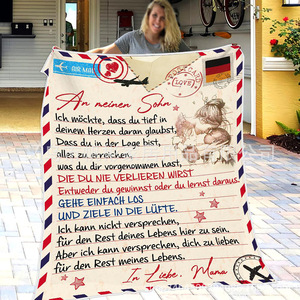 AIR MAIL
LOVE
An meinen Sohn
Ich möchte, dass du tief in
deinem Herzen daran glaubst,
Dass du in der Lage bist,
alles zu erreichen,
was du dir vorgenommen hast,
DIE DU NIE VERLIEREN WIRST
Entweder du gewinnst oder du lernst daraus,
GEHE EINFACH LOS
UND ZIELE IN DIE LÜFTE.
Ich kann nicht versprechen,
für den Rest deines Lebens hier zu sein.
Aber ich kann versprechen, dich zu lieben
für den Rest meines Lebens.
In Liebe, Mama